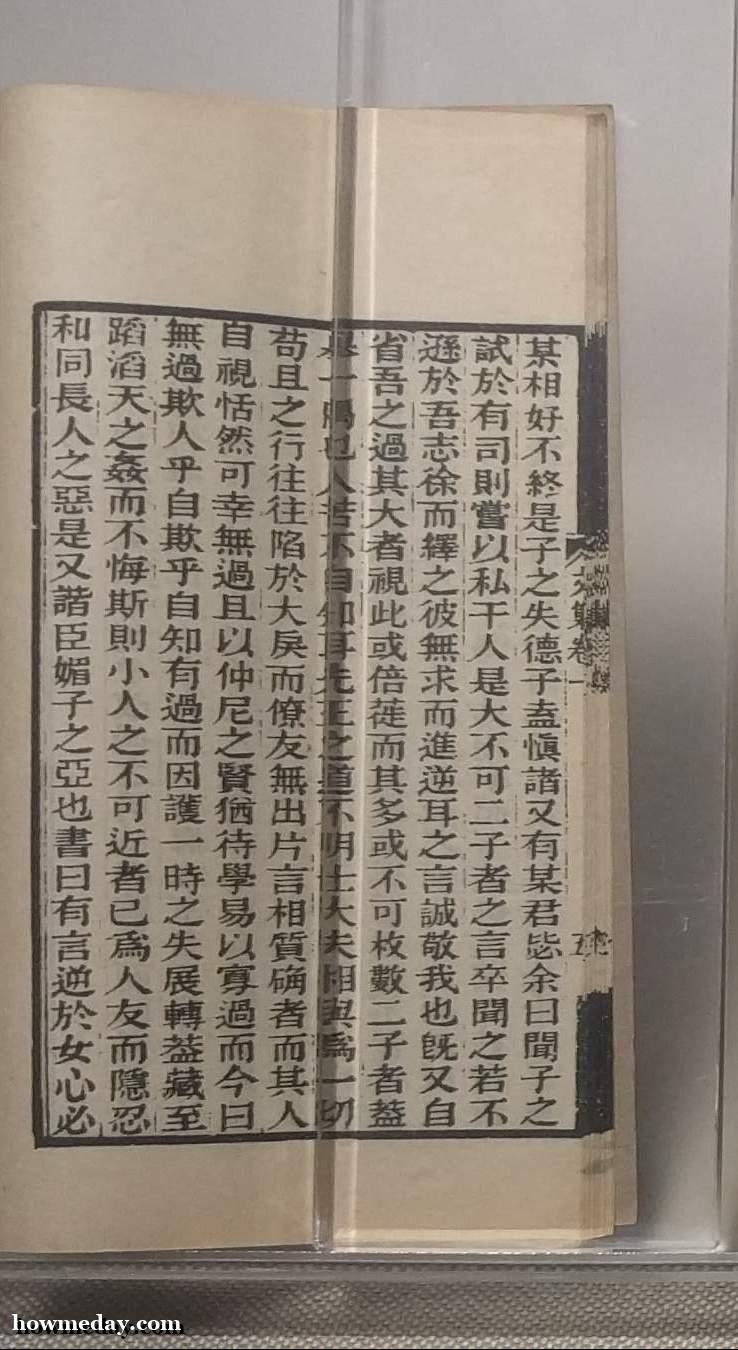 某相好不終是子之失德子盍慎諸又有某君毖余曰聞子之
試於有司則嘗以私干人是大不可二子者之言卒聞之若不
遜於吾志徐而繹之彼無求而進逆耳之言誠敬我也旣又自
省吾之過其大者視此或倍蓰而其多或不可枚數二子者葢
一隅也人苦不自知耳先王之道不明士大夫相與爲一切
苟且之行往往陷於大戾而僚友無出片言相質确者而其人
自視恬然可幸無過且以仲尼之賢猶待學易以寡過而今曰
無過欺人乎自欺乎自知有過而因護一時之失展轉葢藏至
蹈滔天之姦而不悔斯則小人之不可近者已爲人友而隱忍
和同長人之惡是又諧臣媚子之亞也書曰有言逆於女心必
文集卷一
五
howmeday.com